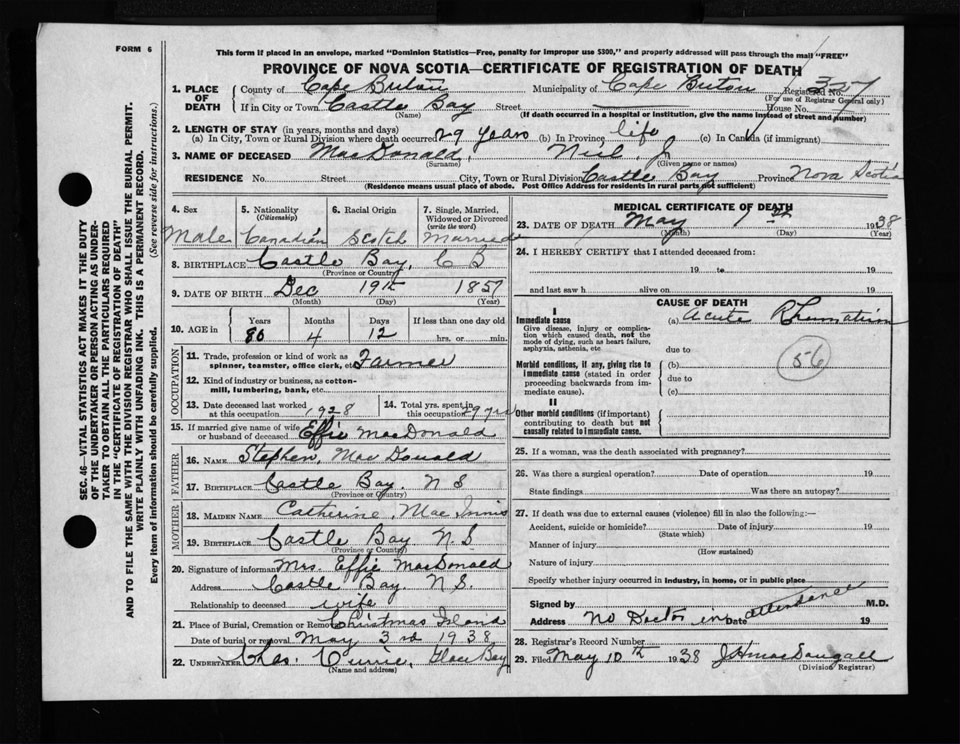 FORM 6
This form if placed in an envelope, marked "Dominion Statistics—Free, penalty for improper use $300," and properly addressed will pass through the mail "FREE"
PROVINCE OF NOVA SCOTIA—CERTIFICATE OF REGISTRATION OF DEATH
SEC. 46—VITAL STATISTICS ACT MAKES IT THE DUTY
OF THE UNDERTAKER OR PERSON ACTING AS UNDER-
TAKER TO OBTAIN ALL THE PARTICULARS REQUIRED
IN THE "CERTIFICATE OF REGISTRATION OF DEATH"
AND TO FILE THE SAME WITH THE DIVISION REGISTRAR WHO SHALL ISSUE THE BURIAL PERMIT.
WRITE PLAINLY WITH UNFADING INK. THIS IS A PERMANENT RECORD.
Every item of information should be carefully supplied. (See reverse side for instructions.)
1. PLACE OF DEATH County of Cape Breton Municipality of Cape Breton Registered No. 327
(For use of Registrar General only)
If in City or Town Castle Bay Street House No.
(Name) (If death occurred in a hospital or institution, give the name instead of street and number)
2. LENGTH OF STAY (in years, months and days)
(a) In City, Town or Rural Division where death occurred 29 years (b) In Province life (c) In Canada (if immigrant)
3. NAME OF DECEASED MacDonald, Niel J.
(Surname) (Given name or names)
RESIDENCE No. Street City, Town or Rural Division Castle Bay Province Nova Scotia
(Residence means usual place of abode. Post Office Address for residents in rural parts not sufficient)
4. Sex 5. Nationality (Citizenship) 6. Racial Origin 7. Single, Married, Widowed or Divorced (write the word)
Male Canadian Scotch Married
8. BIRTHPLACE Castle Bay, C B
(Province or Country)
9. DATE OF BIRTH Dec 19th 1857
(Month) (Day) (Year)
10. AGE in Years Months Days If less than one day old
80 4 12 hrs. or min.
OCCUPATION
11. Trade, profession or kind of work as spinner, teamster, office clerk, etc. Farmer
12. Kind of industry or business, as cotton-mill, lumbering, bank, etc.
13. Date deceased last worked at this occupation 1928 14. Total yrs. spent in this occupation 29 yrs
15. If married give name of wife or husband of deceased Effie MacDonald
FATHER
16. NAME Stephen, MacDonald
17. BIRTHPLACE Castle Bay. N S
(Province or Country)
MOTHER
18. MAIDEN NAME Catherine, MacInnis
19. BIRTHPLACE Castle Bay N.S
(Province or Country)
20. Signature of informant Mrs. Effie MacDonald
Address Castle Bay. N S.
Relationship to deceased wife
21. Place of Burial, Cremation or Removal Christmas Island
Date of burial or removal May 3rd 1938
22. UNDERTAKER Chas. Currie, Glace Bay
(Name and address)
MEDICAL CERTIFICATE OF DEATH
23. DATE OF DEATH May 1st 1938
(Month) (Day) (Year)
24. I HEREBY CERTIFY that I attended deceased from:
19 to 19
and last saw h alive on 19
CAUSE OF DEATH
I
Immediate cause (a) Acute Rhumatism
Give disease, injury or complication which caused death, not the mode of dying, such as heart failure, asphyxia, asthenia, etc due to
56
Morbid conditions, if any, giving rise to immediate cause (stated in order proceeding backwards from immediate cause). (b)
due to
(c)
II
Other morbid conditions (if important) contributing to death but not causally related to immediate cause.
25. If a woman, was the death associated with pregnancy?
26. Was there a surgical operation? Date of operation 19
State findings Was there an autopsy?
27. If death was due to external causes (violence) fill in also the following:—
Accident, suicide or homicide? Date of injury 19
(State which)
Manner of injury
(How sustained)
Nature of injury
Specify whether injury occurred in industry, in home, or in public place
Signed by M.D.
Address No Doctor in attendance Date 19
28. Registrar's Record Number
29. Filed May 10th 1938 J H MacDougall
(Division Registrar)